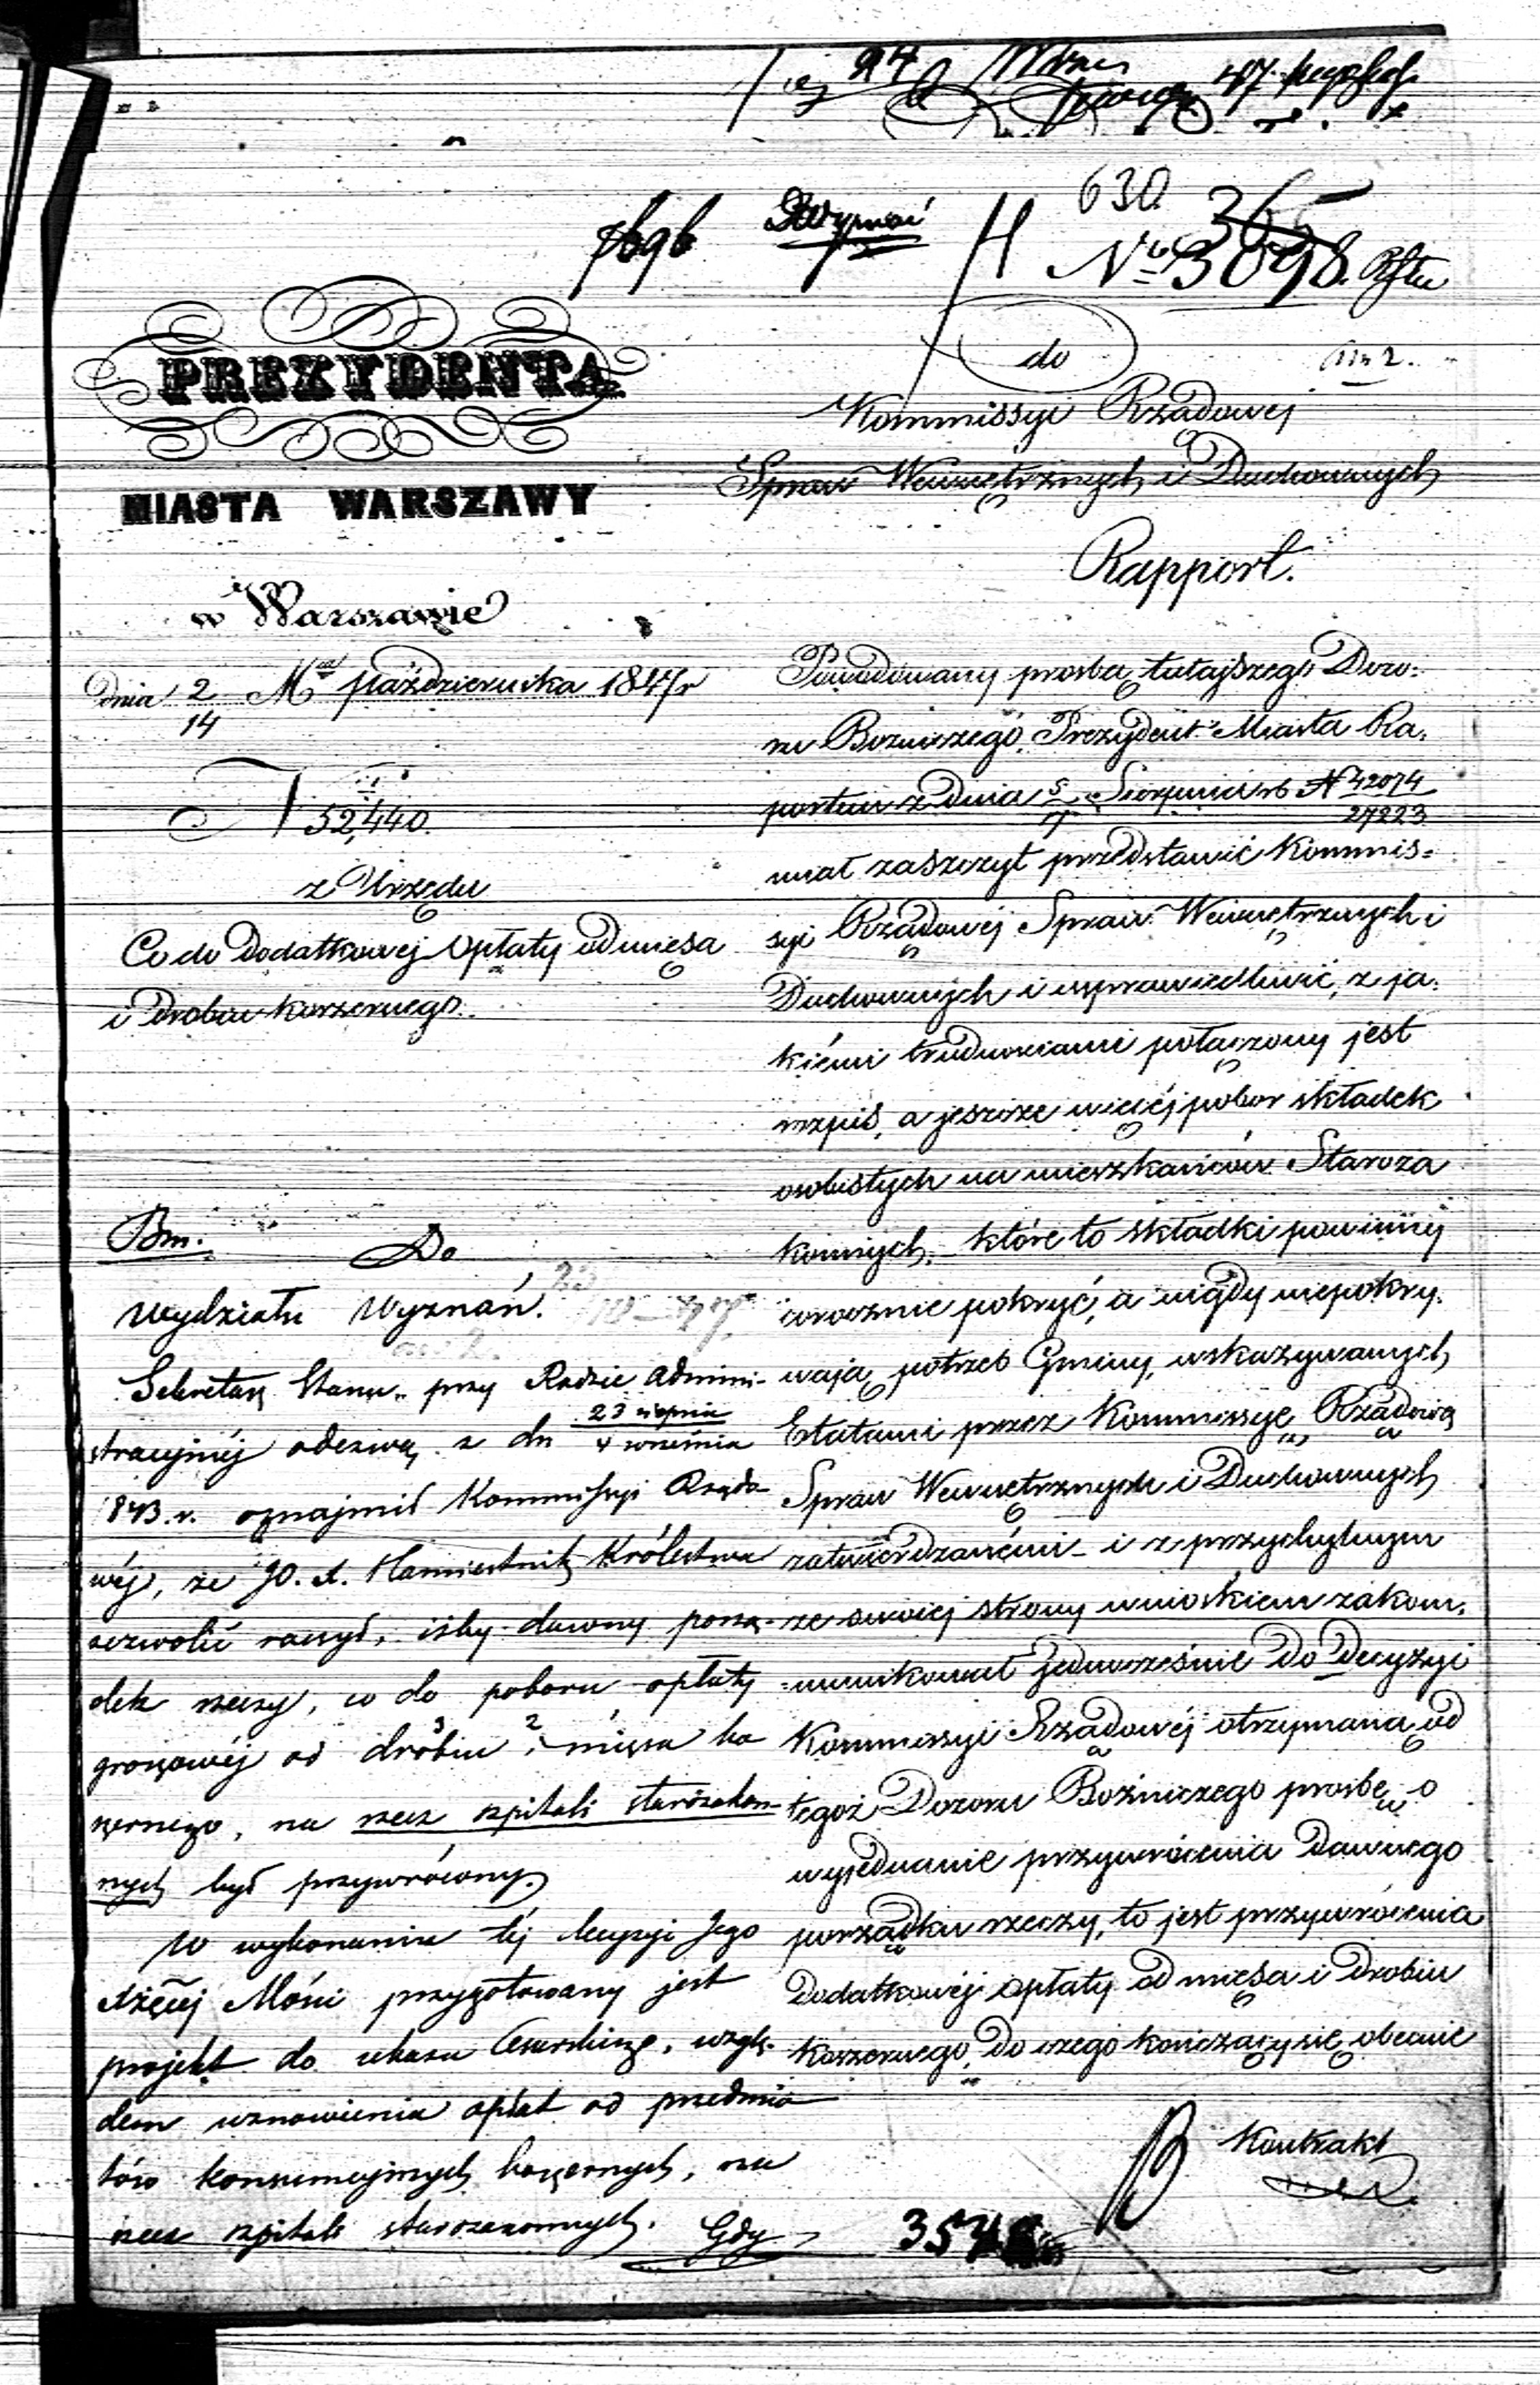 94
630.
365
7696
No 3698.
PREZYDENTA
MIASTA WARSZAWY
w Warszawie
dnia 2/14 Mca Października 1847 r
N 52,440.
z Urzędu
Co do Dodatkowej Opłaty od mięsa
i Drobiu koszernego.
do
Kommissyi Rządowej
Spraw Wewnętrznych i Duchownych
Rapport.
Powodowany prośbą tutajszego Dozo:
ru Bożniczego, Prezydent Miasta Ra,
portem z dnia 5/ Sierpnia rb N 42074/27223
miał zaszczyt przedstawić Kommis=
syi Rządowej Spraw Wewnętrznych i
Duchownych i usprawiedliwić, z ja:
kiémi trudnościami połączony jest
rozpis, a jeszcze więcéj pobor składek
osobistych na mieszkańców Staroza
konnych, które to składki powinny
corocznie pokryć, a nigdy niepokry,
wają potrzeb Gminy, wskazywanych
Etatami przez Kommissyę Rządową
Spraw Wewnętrznych i Duchownych
zatwierdzanémi – i z przychylnym
ze swéj strony wnioskiem zakom,
munikował jednocześnie Do Decyzyi
Kommissyi Rządowéj otrzymaną od
tegoż Dozoru Bożniczego prośbę o
wyjednanie przywrócenia Dawnego
porządku rzeczy, to jest przywrócenia
Dodatkowéj opłaty od mięsa i Drobiu
Koszernego, Do czego kończący się obecnie
Kontrakt
Bm.
Do
Wydziału Wyznań.
Sekretarz Stanu przy Radzie Admini-
stracyjnéj odezwą z dn 23 sierpnia/4 września
1843 r. oznajmił Kommissyi Rządo-
wéj, że JO. X. Namiestnik Królestwa
zezwolić raczył, iżby dawny porzą-
dek rzeczy, co do poboru opłaty
groszowéj od drobiu i mięsa ko
szernego, na rzecz szpitali starozakon-
nych był przywrócony.
W wykonaniu téj decyzyi Jego
Xiężęcej Mości przygotowany jest
projekt do ukazu Cesarskiego, wzglę-
dem wznowienia opłat od przedmio
tów konsumcyjnych koszernych, na
rzecz szpitali starozakonnych. Gdy